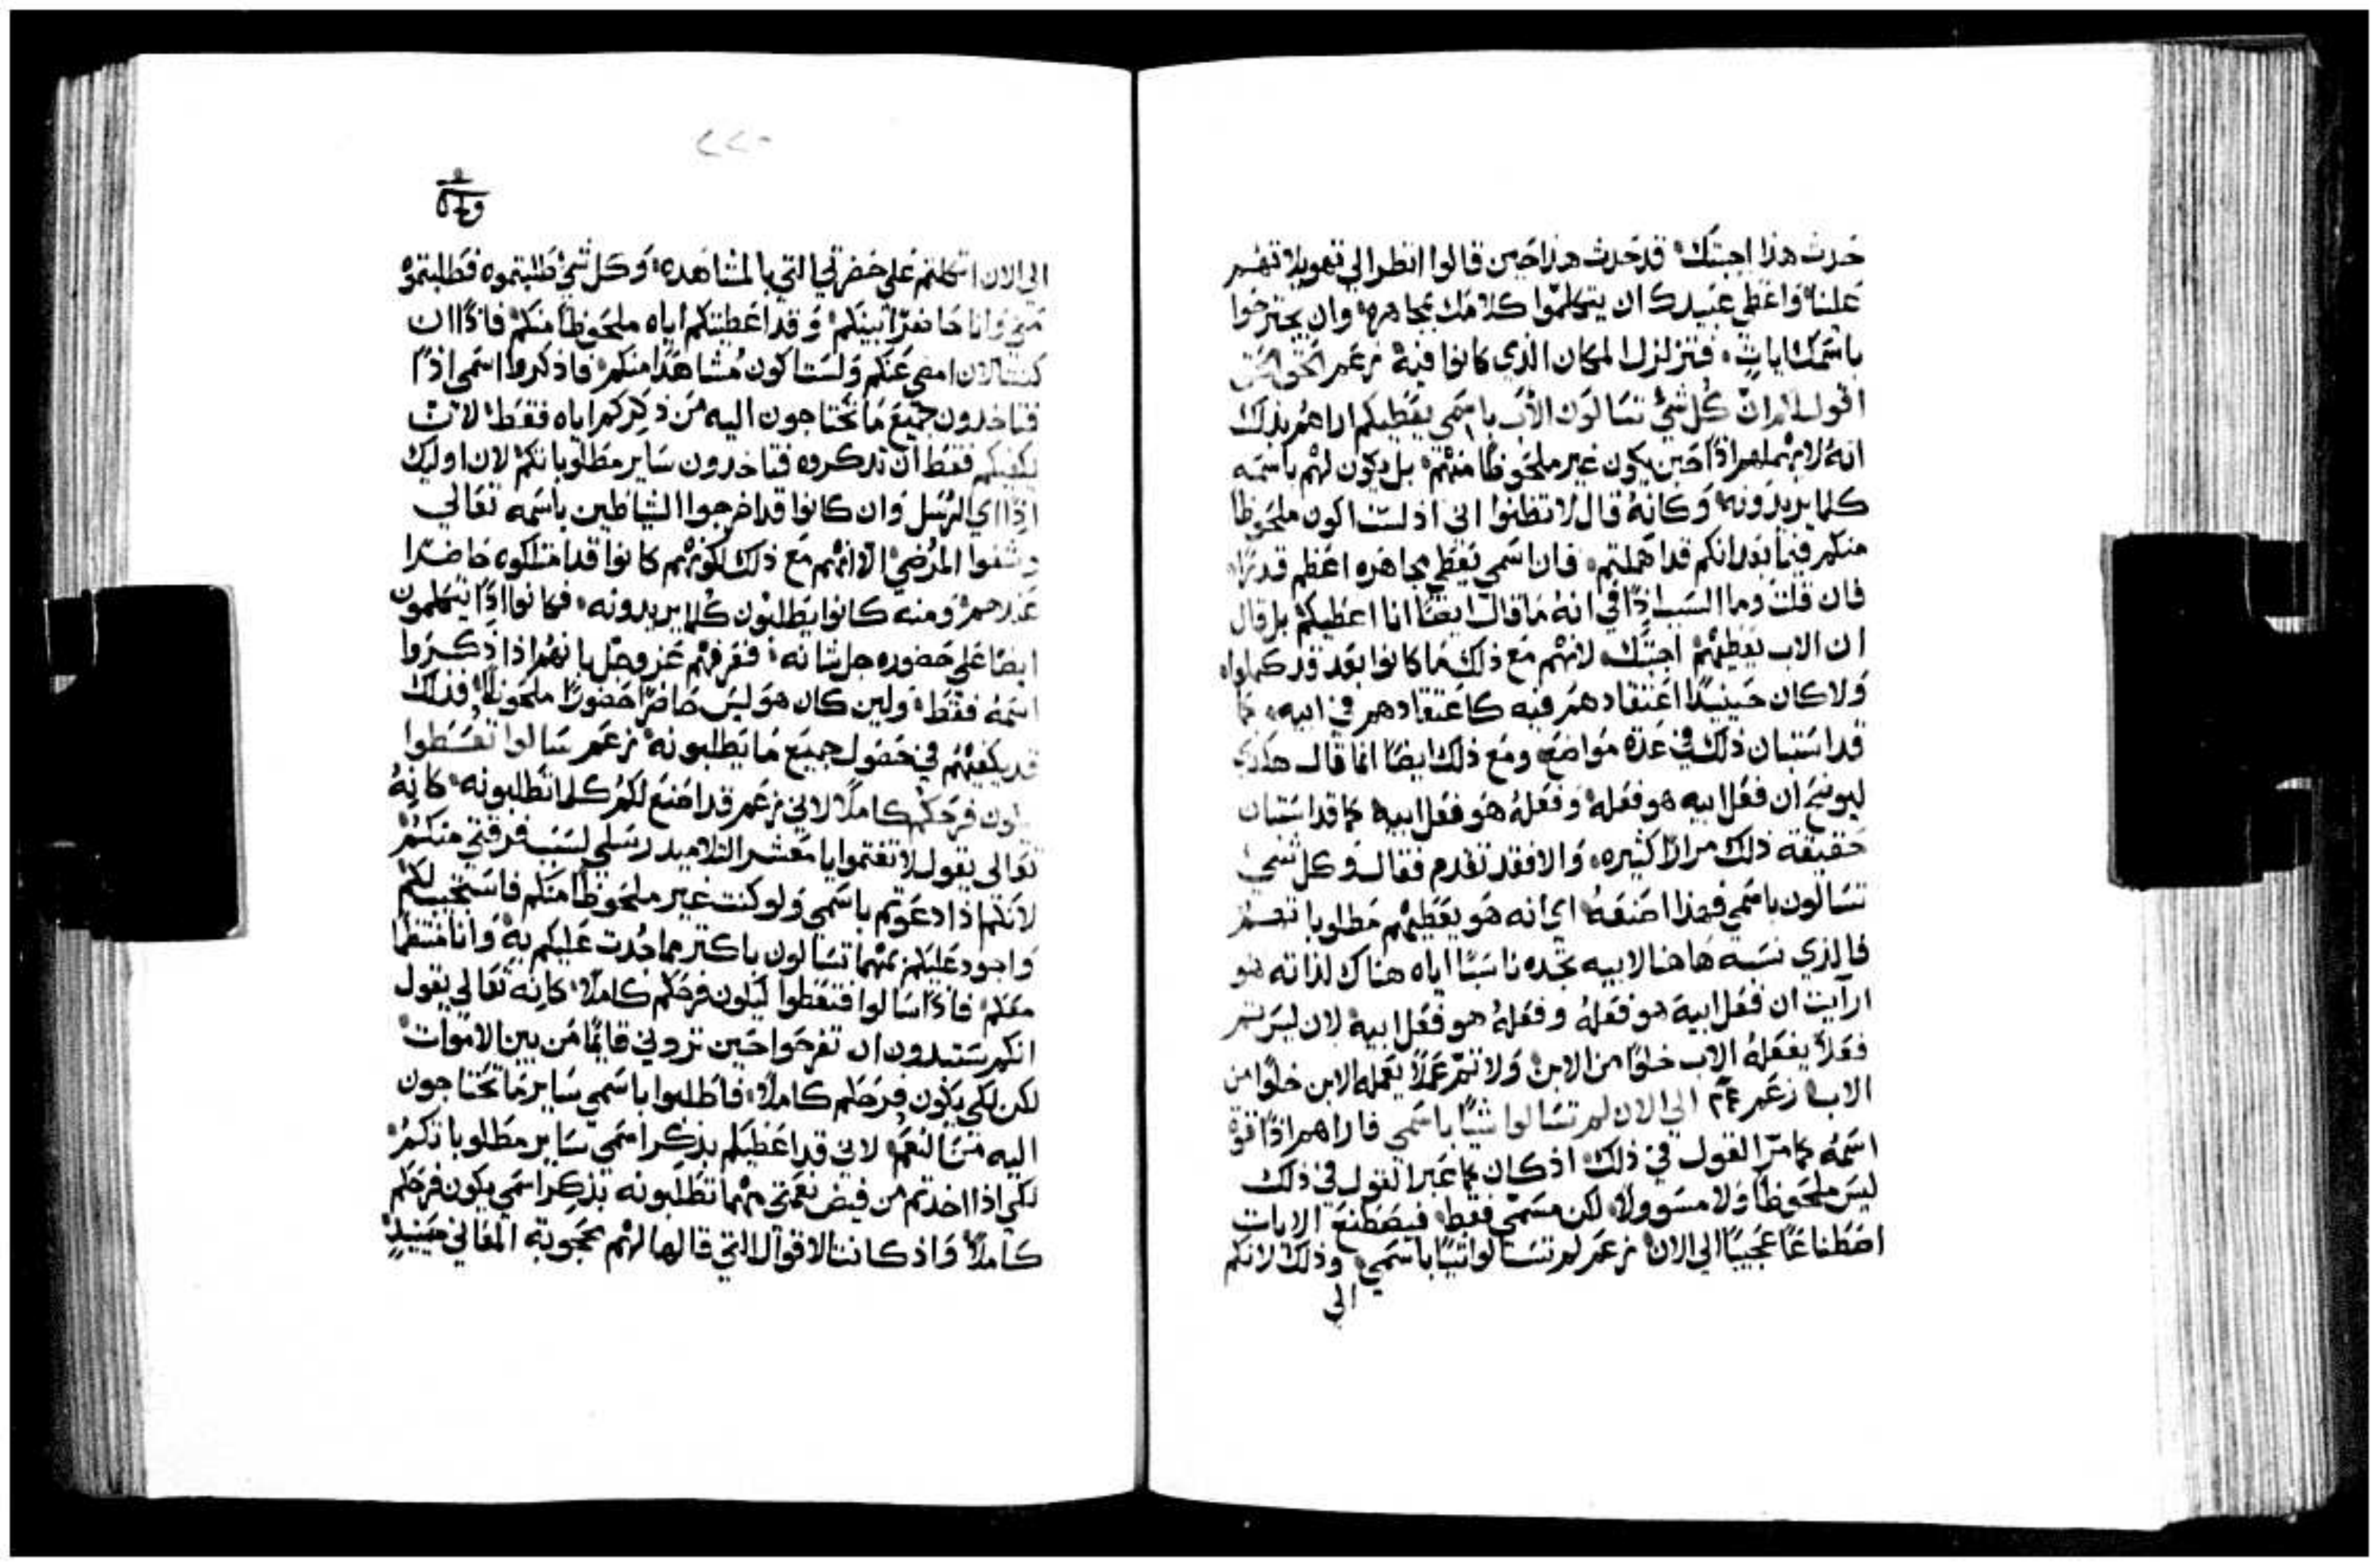 حدث هذا اجبتك قد حدث هذا حين قالوا انظر الي تهويلاتهم
علينا واعطي عبيدك ان يتكلموا كلامك بمجاهره وان يجترحوا
باسمك ايات فتزلزل المكان الذي كانوا فيه زعم الحق الحق
اقول لكم ان كل شي تسالون الاب باسمي يعطيكم اراهم بذلك
انه لا يهملهم اذًا حين يكون غير ملحوظًا منهم بل يكون لهم باسمه
كلما يريدونه وكانه قال لا تظنوا اني اذ لست اكون ملحوظًا
منكم فيما بعد انكم قد اهملتم فان اسمي يعطي مجاهره اعظم قدرًا
فان قلت وما السبب اذًا في انه ما قال ايضًا انا اعطيكم بل قال
ان الاب يعطيهم اجبتك لانهم مع ذلك ما كانوا بعد قد كملوا
ولا كان حينيذٍ اعتقادهم فيه كاعتقادهم في ابيه كما
قد استبان ذلك في عدة مواضع ومع ذلك ايضًا انما قال هكذي
ليوضح ان فعل ابيه هو فعله وفعله هو فعل ابيه كما قد استبان
حقيقة ذلك مرارًا كثيره والا فقد تقدم فقال وكل شي
تسالون باسمي فهذا اصنعه اي انه هو يعطيهم مطلوباتهم
فالذي نسبه هاهنا لابيه تجده ناسبًا اياه هناك لذاته هو
ارآيت ان فعل ابيه هو فعله وفعله هو فعل ابيه لان ليس تم
فعلاً يفعله الاب خلوًا من الابن ولا تم عملاً يعمله الابن خلوًا من
الاب زعم الي الان لم تسالوا شيًا باسمي فاراهم اذًا قوة
اسمه كما مرّ القول في ذلك اذ كان كما عبر القول في ذلك
ليس ملحوظًا ولا مسوولاً لكن مسمّي فقط فيصطنع الايات
اصطناعًا عجيبًا الي الان زعم لم تسالوا شيًا باسمي وذلك لانكم
الي
٢٢٠
الي الان اتكلتم علي حضرتي التي بالمشاهده وكل شي طلبتموه فطلبتموه
مني وانا حاضرًا بينكم وقد اعطيتكم اياه ملحوظًا منكم فاذًا ان
كنت الان امضي عنكم ولست اكون مشاهدًا منكم فاذكروا اسمي اذًا
فتاخذون جميع ما تحتاجون اليه من ذكركم اياه فقط لان
يكفيكم فقط ان تذكروه فتاخذون ساير مطلوباتكم لان اوليك
اذًا اي الرسل وان كانوا قد اخرجوا الشياطين باسمه تعالي
وشفوا المرضي الا انهم مع ذلك لكونهم كانوا قد امتلكوه حاضرًا
عندهم ومنه كانوا يطلبون كلما يريدونه فكانوا اذًا يتكلمون
ايضًا علي حضوره جل شانه فعرفهم عز وجل بانهم اذا ذكروا
اسمه فقط ولين كان هو ليس حاضرًا حضورًا ملحوظًا فذلك
قد يكفيهم في حصول جميع ما يطلبونه زعم سالوا تعطوا
ليكون فرحكم كاملاً لاني زعم قد اصنع لكم كلما تطلبونه كانه
تعالي يقول لا تغتموا يا معشر التلاميد رسلي لسبب فرقتي منكم
لانكم اذا دعوتم باسمي ولو كنت غير ملحوظًا منكم فاستجيب لكم
واجود عليكم بمهما تسالون باكتر مما جدت عليكم به وانا متصرفًا
معكم فاذًا سالوا فتعطوا ليكون فرحكم كاملاً كانه تعالي يقول
انكم ستبدون ان تفرحوا حين تروني قايمًا من بين الاموات
لكن لكي يكون فرحكم كاملاً فاطلبوا باسمي ساير ما تحتاجون
اليه من النعم لاني قد اعطيكم بذكر اسمي ساير مطلوباتكم
لكي اذا اخذتم من فيض نعمتي مهما تطلبونه بذكر اسمي يكون فرحكم
كاملاً واذ كانت الاقوال التي قالها لهم محجوبة المعاني حينيذٍ